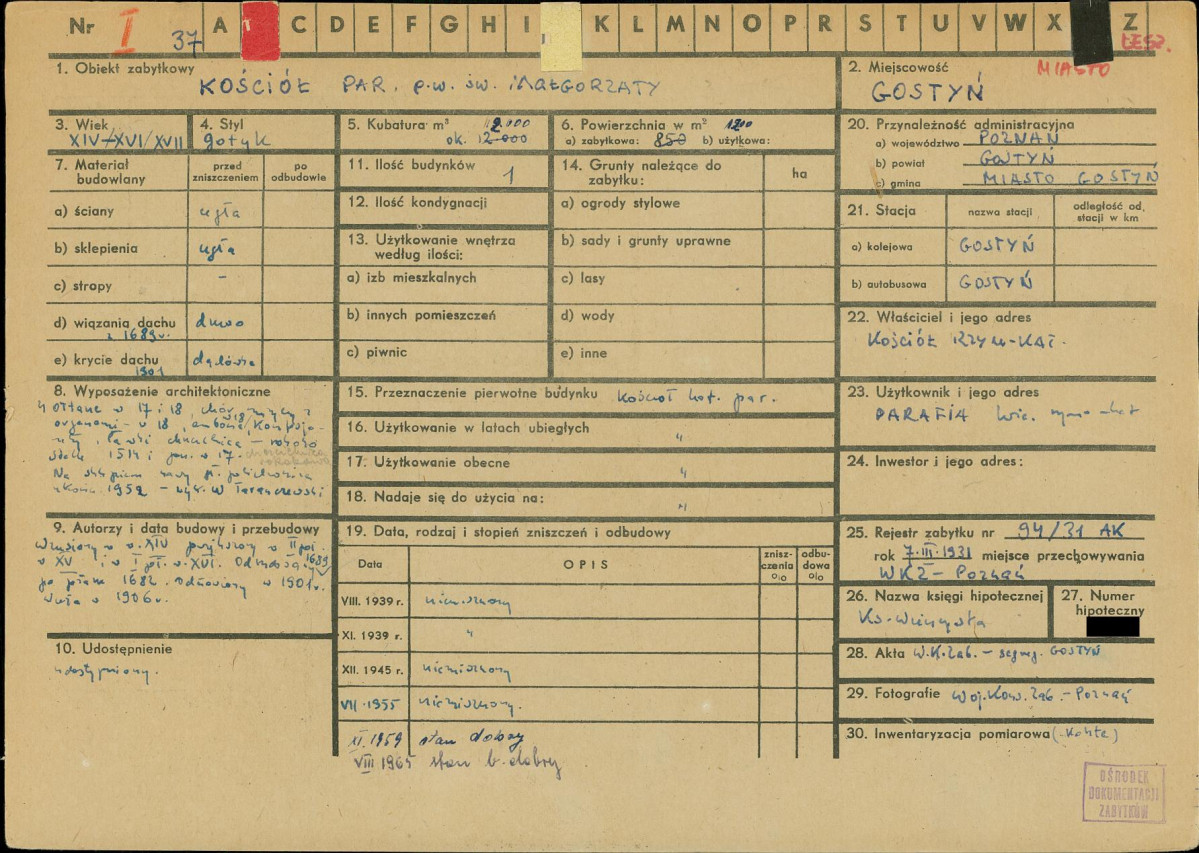 Nr I 37 A C D E F G H I K L M N O P R S T U V W X Z
ŁESZ.
1. Obiekt zabytkowy
KOŚCIÓŁ PAR. p.w. św. MAŁGORZATY
2. Miejscowość
MIASTO
GOSTYŃ
3. Wiek
XIV/XVI/XVII
4. Styl
gotyk
5. Kubatura m³
ok. 12 000
6. Powierzchnia w m² 1200
a) zabytkowa: 850 b) użytkowa:
20. Przynależność administracyjna
a) województwo POZNAŃ
b) powiat GOSTYŃ
c) gmina MIASTO GOSTYŃ
7. Materiał budowlany
przed zniszczeniem
po odbudowie
a) ściany cegła
b) sklepienia cegła
c) stropy –
d) wiązania dachu drewno
z 1689 r.
e) krycie dachu dachówka
1901
11. Ilość budynków 1
12. Ilość kondygnacji
13. Użytkowanie wnętrza
według ilości:
a) izb mieszkalnych
b) innych pomieszczeń
c) piwnic
14. Grunty należące do
zabytku:
ha
a) ogrody stylowe
b) sady i grunty uprawne
c) lasy
d) wody
e) inne
21. Stacja
nazwa stacji
odległość od
stacji w km
a) kolejowa GOSTYŃ
b) autobusowa GOSTYŃ
22. Właściciel i jego adres
KOŚCIÓŁ RZYM-KAT.
8. Wyposażenie architektoniczne
4 ołtarze w 17 i 18, chór
organami – w 18, ambona
ławki
stalle
Na
1952 – W Taranczewski
15. Przeznaczenie pierwotne budynku kościół kat. par.
16. Użytkowanie w latach ubiegłych "
17. Użytkowanie obecne "
18. Nadaje się do użycia na: "
23. Użytkownik i jego adres
PARAFIA
24. Inwestor i jego adres:
9. Autorzy i data budowy i przebudowy
Wzniesiony w w. XIV w II poł.
w XV i w I poł. w. XVI. 1689
po 1682. Odnowiony w 1901 r.
w 1906 r.
10. Udostępnienie
udostępniony.
19. Data, rodzaj i stopień zniszczeń i odbudowy
Data
OPIS
znisz-
czenia
o/o
odbu-
dowa
o/o
VIII. 1939 r. niezniszczony
XI. 1939 r. "
XII. 1945 r. niezniszczony
VII 1955 niezniszczony.
XI. 1959 stan dobry
VIII 1965 stan b. dobry
25. Rejestr zabytku nr 94/31 AK
rok 7.III.1931 miejsce przechowywania
WKZ – Poznań
26. Nazwa księgi hipotecznej
Ks. wieczysta
27. Numer
hipoteczny
28. Akta W.K.Zab. – segreg. GOSTYŃ
29. Fotografie Woj. Kons. Zab. – Poznań
30. Inwentaryzacja pomiarowa (Kohte)
OŚRODEK
DOKUMENTACJI
ZABYTKÓW